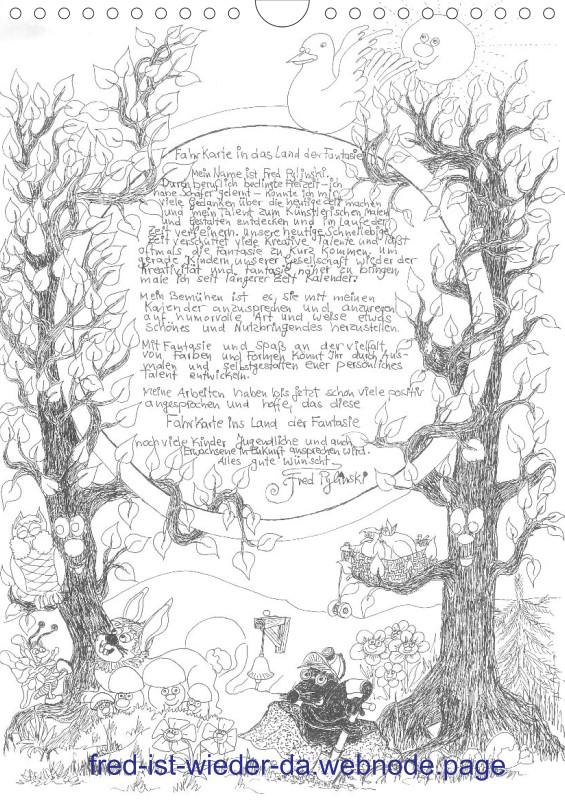 Fahrkarte in das Land der Fantasie
Mein Name ist Fred Pylinski.
Durch beruflich bedingte Freizeit – ich
habe Schäfer gelernt – konnte ich mir
viele Gedanken über die heutige Zeit machen
und mein Talent zum Künstlerischen Malen
und Gestalten entdecken und im Laufe der
Zeit verfeinern. Unsere heutige Schnellebige
Zeit verschüttet viele Kreative Talente und läßt
oftmals die Fantasie zu Kurz Kommen. Um
gerade Kindern unserer Gesellschaft wieder der
Kreativität und Fantasie näher zu bringen,
male ich seit längerer Zeit Kalender.
Mein Bemühen ist es, sie mit meinen
Kalender anzusprechen und anzuregen
auf humorvolle Art und Weise etwas
Schönes und Nutzbringendes herzustellen.
Mit Fantasie und Spaß an der Vielfalt
von Farben und Formen Könnt Ihr durch Aus-
malen und selbstgestalten Euer persönliches
Talent entwickeln.
Meine Arbeiten haben bis jetzt schon viele positiv
angesprochen und hoffe, das diese
Fahrkarte ins Land der Fantasie
noch viele Kinder Jugendliche und auch
Erwachsene in Zukunft ansprechen wird.
Alles gute wünscht
Fred Pylinski
fred-ist-wieder-da.webnode.page